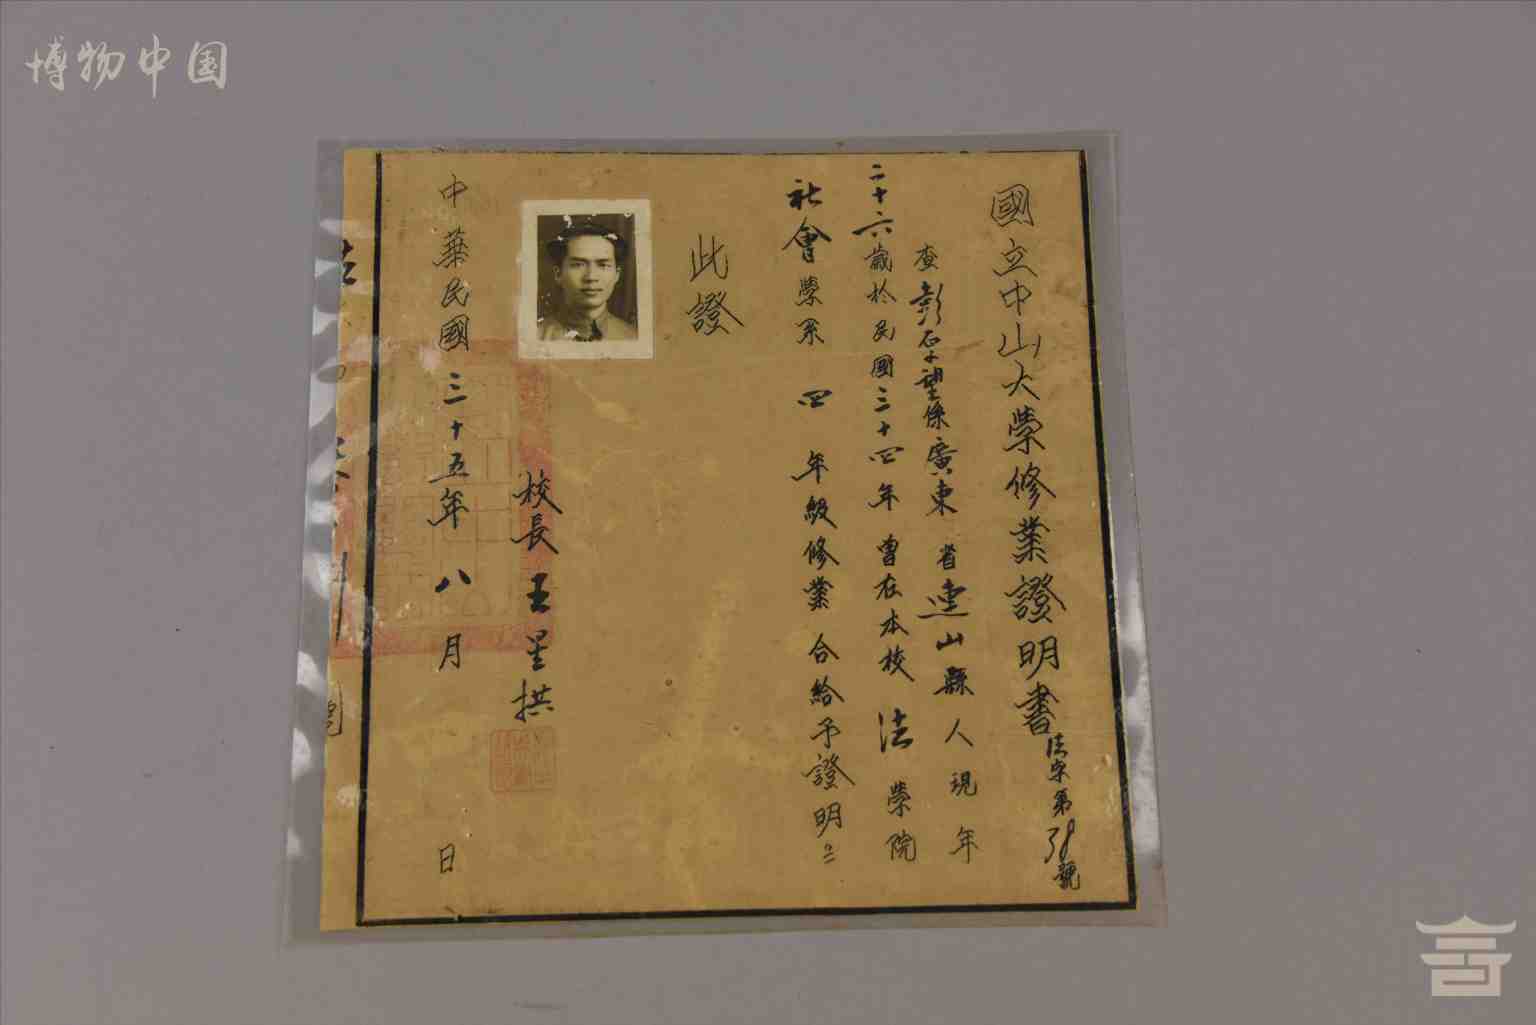 博物中国
國立中山大學修業證明書法字第38號
查彭石望係廣東省連山縣人現年
二十六歲於民國三十四年曾在本校法學院
社會學系四年級修業合給予證明
此證
校長王星拱
中華民國三十五年八月日